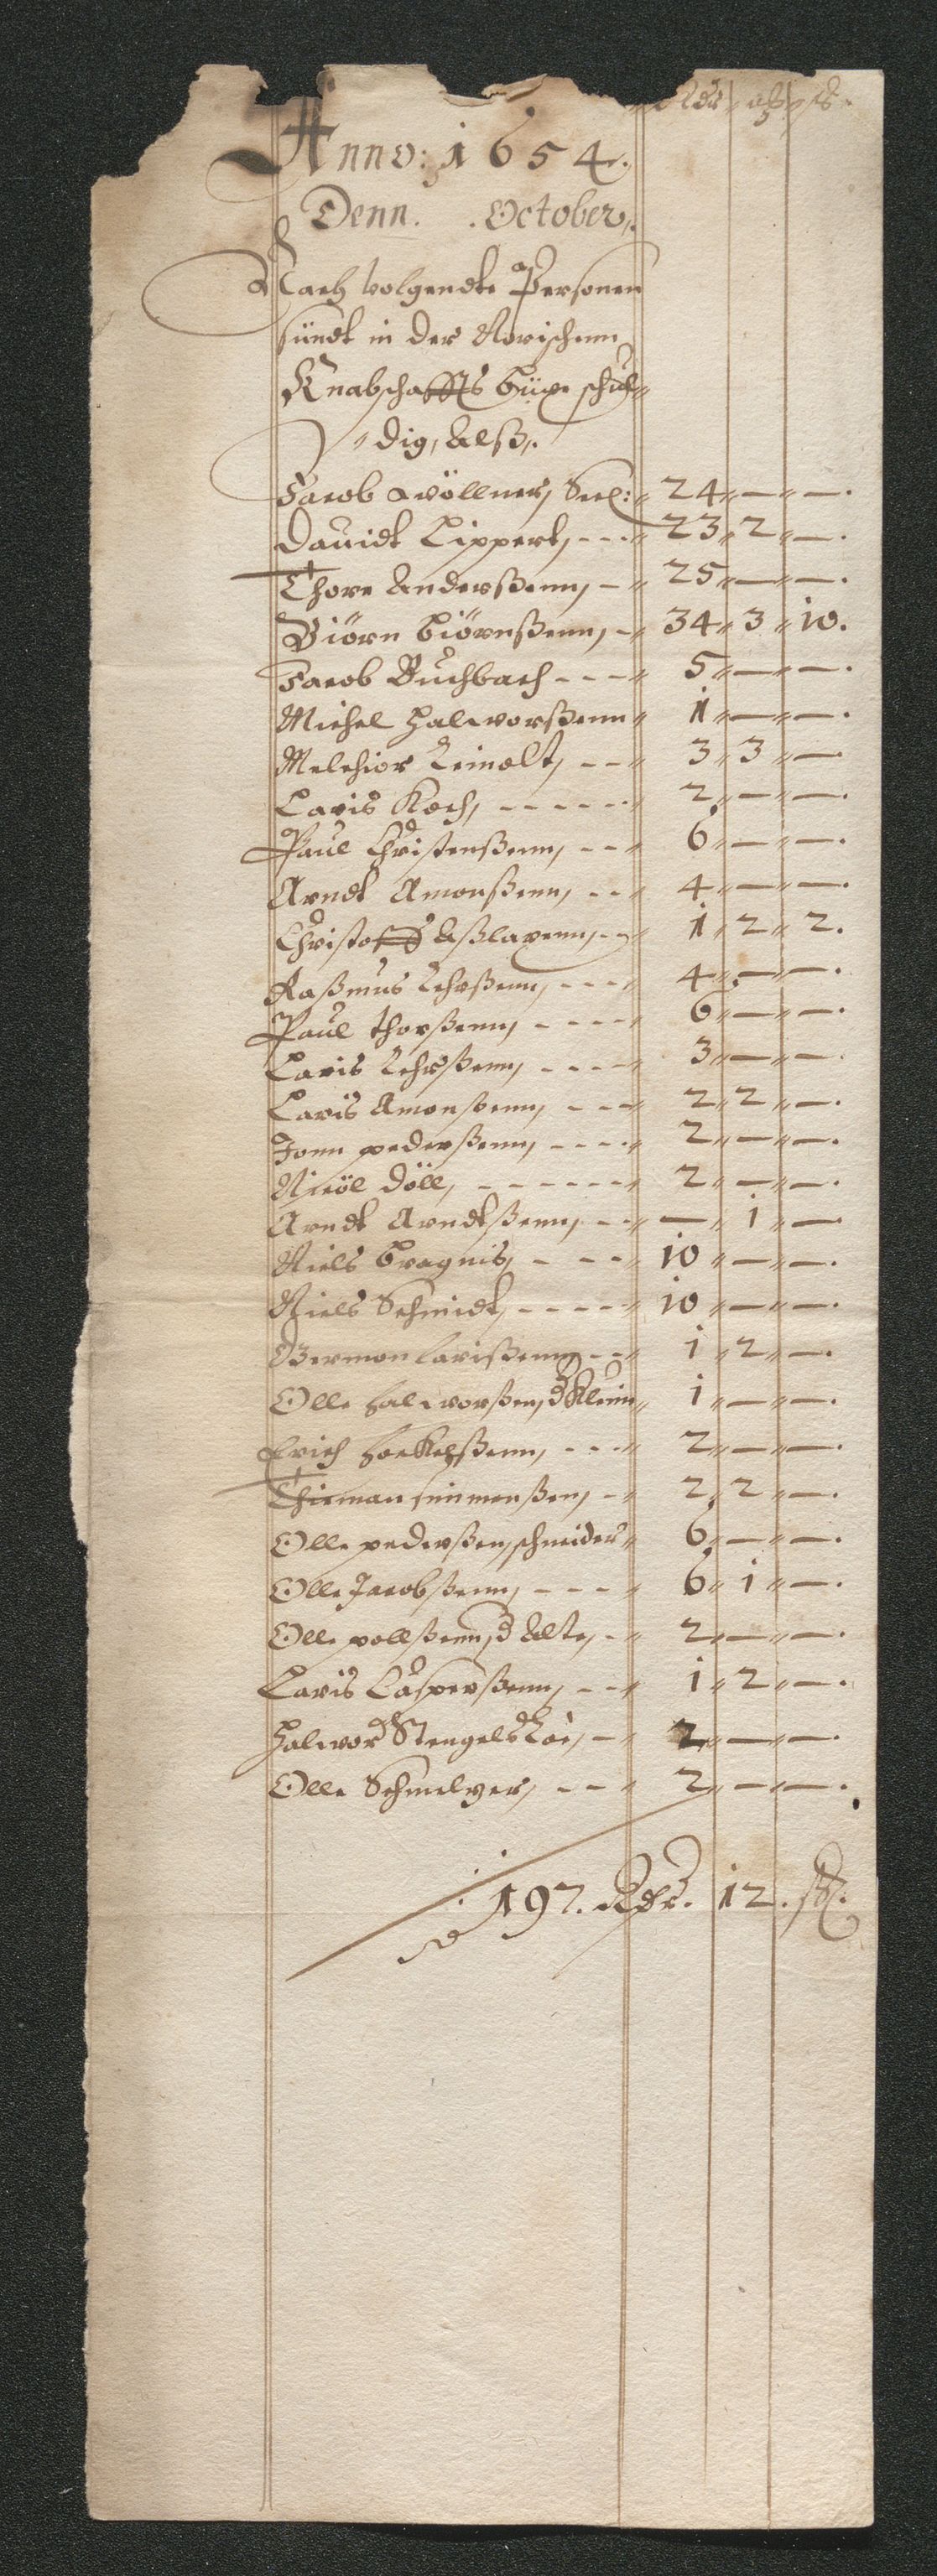 Rdr ort ß
Anno: 1654.
Denn. . October.
Nach volgendte Personen
sündt in der Norischenn
Knabschaffts büxe schul„
„dig, Alß.
Jacob Wöllner, Seel: „ 24 „ — „ —.
Dauidt Lippert, - - - „ 23 „ 2 „ —.
Thore Anderßenn, - „ 25 „ — „ —.
Biörn Biörnßenn, - „ 34 „ 3 „ 10.
Jacob Buchbach - - - - „ 5 „ — „ —.
Michel Halworßenn „ 1 „ — „ —.
Melchior Leinolt, - - „ 3 „ 3 „ —
Laris Koch, - - - - - - „ 2 „ — „ —.
Paul Christenßenn, - - „ 6 „ — „ —.
Arndt Amonßenn, - - „ 4 „ — „ —.
Christoff Aßlaxenn, - - „ 1 „ 2 „ 2.
Raßmus Lehrßenn, - - - „ 4 „ — „ —.
Paul Thorßenn, - - - - „ 6 „ — „ —.
Laris Lehrßenn, - - - - „ 3 „ — „ —.
Laris Amonßenn, - - - „ 2 „ 2 „ —.
Jonn pederßenn, - - - - „ 2 „ — „ —.
Nicöl Döll, - - - - - - „ 2 „ — „ —.
Arndt Arndtßenn, - - „ — „ 1 „ —
Niels Bragnis, - - - „ 10 „ — „ —.
Niels Schmidt, - - - - - „ 10 „ — „ —.
Germon Larißenn - - „ 1 „ 2 „ —.
Olle Halworßen, d Klein „ 1 „ — „ —.
Erich Hoekelßenn, - - - „ 2 „ — „ —.
Thirman simmenßen, - „ 2 „ 2 „ —.
Olle pederßen, schneider „ 6 „ — „ —.
Olle Jacobßenn, - - - - „ 6 „ 1 „ —.
Olle pollßenn, d Alte, - „ 2 „ — „ —.
Laris Casperßenn, - - „ 1 „ 2 „ —.
Halwor Stengelsloe, - „ 2 „ — „ —.
Olle Schmelzer, - - „ 2 „ — „ —.
197. Rdr. 12. ß.